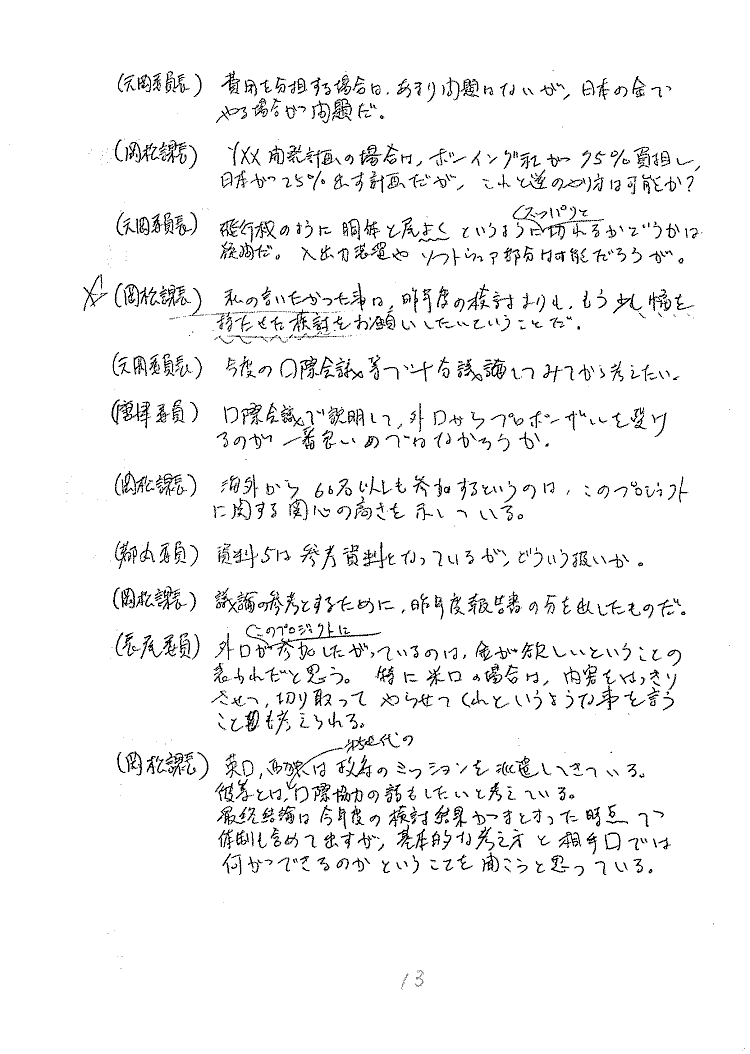 (元岡委員長) 費用を分担する場合は、あまり問題はないが、日本の金で
やる場合が問題だ。
(岡松課長) YXX開発計画の場合は、ボーイング社が75%負担し、
日本が25%出す計画だが、これと逆のやり方は可能か?
(元岡委員長) 飛行機のように胴体と尾よくというように(スッパリと)切れるかどうかは
疑問だ。入出力装置やソフトウェア部分は可能だろうが。
(岡松課長) 私の言いたかった事は、昨年度の検討よりも、もう少し幅を
持たせた検討をお願いしたいということだ。
(元岡委員長) 今度の国際会議等で十分議論してみてから考えたい。
(唐津委員) 国際会議で説明して、外国からプロポーザルを受け
るのが一番良いのではなかろうか。
(岡松課長) 海外から60名以上も参加するというのは、このプロジェクト
に関する関心の高さを示している。
(都丸委員) 資料5は参考資料となっているが、どういう扱いか。
(岡松課長) 議論の参考とするために、昨年度報告書の分を出したものだ。
(長尾委員) 外国が(このプロジェクトに)参加したがっているのは、金が欲しいということの
表われだと思う。特に米国の場合は、内容をはっきり
させて、切り取ってやらせてくれというような事を言う
ことも考えられる。
(岡松課長) 英国、西独は次世代の政府のミッションを派遣してきている。
彼等とは、国際協力の話もしたいと考えている。
最終結論は今年度の検討結果がまとまった時点で
体制も含めて出すが、基本的な考え方と相手国では
何ができるのかということを聞こうと思っている。
13